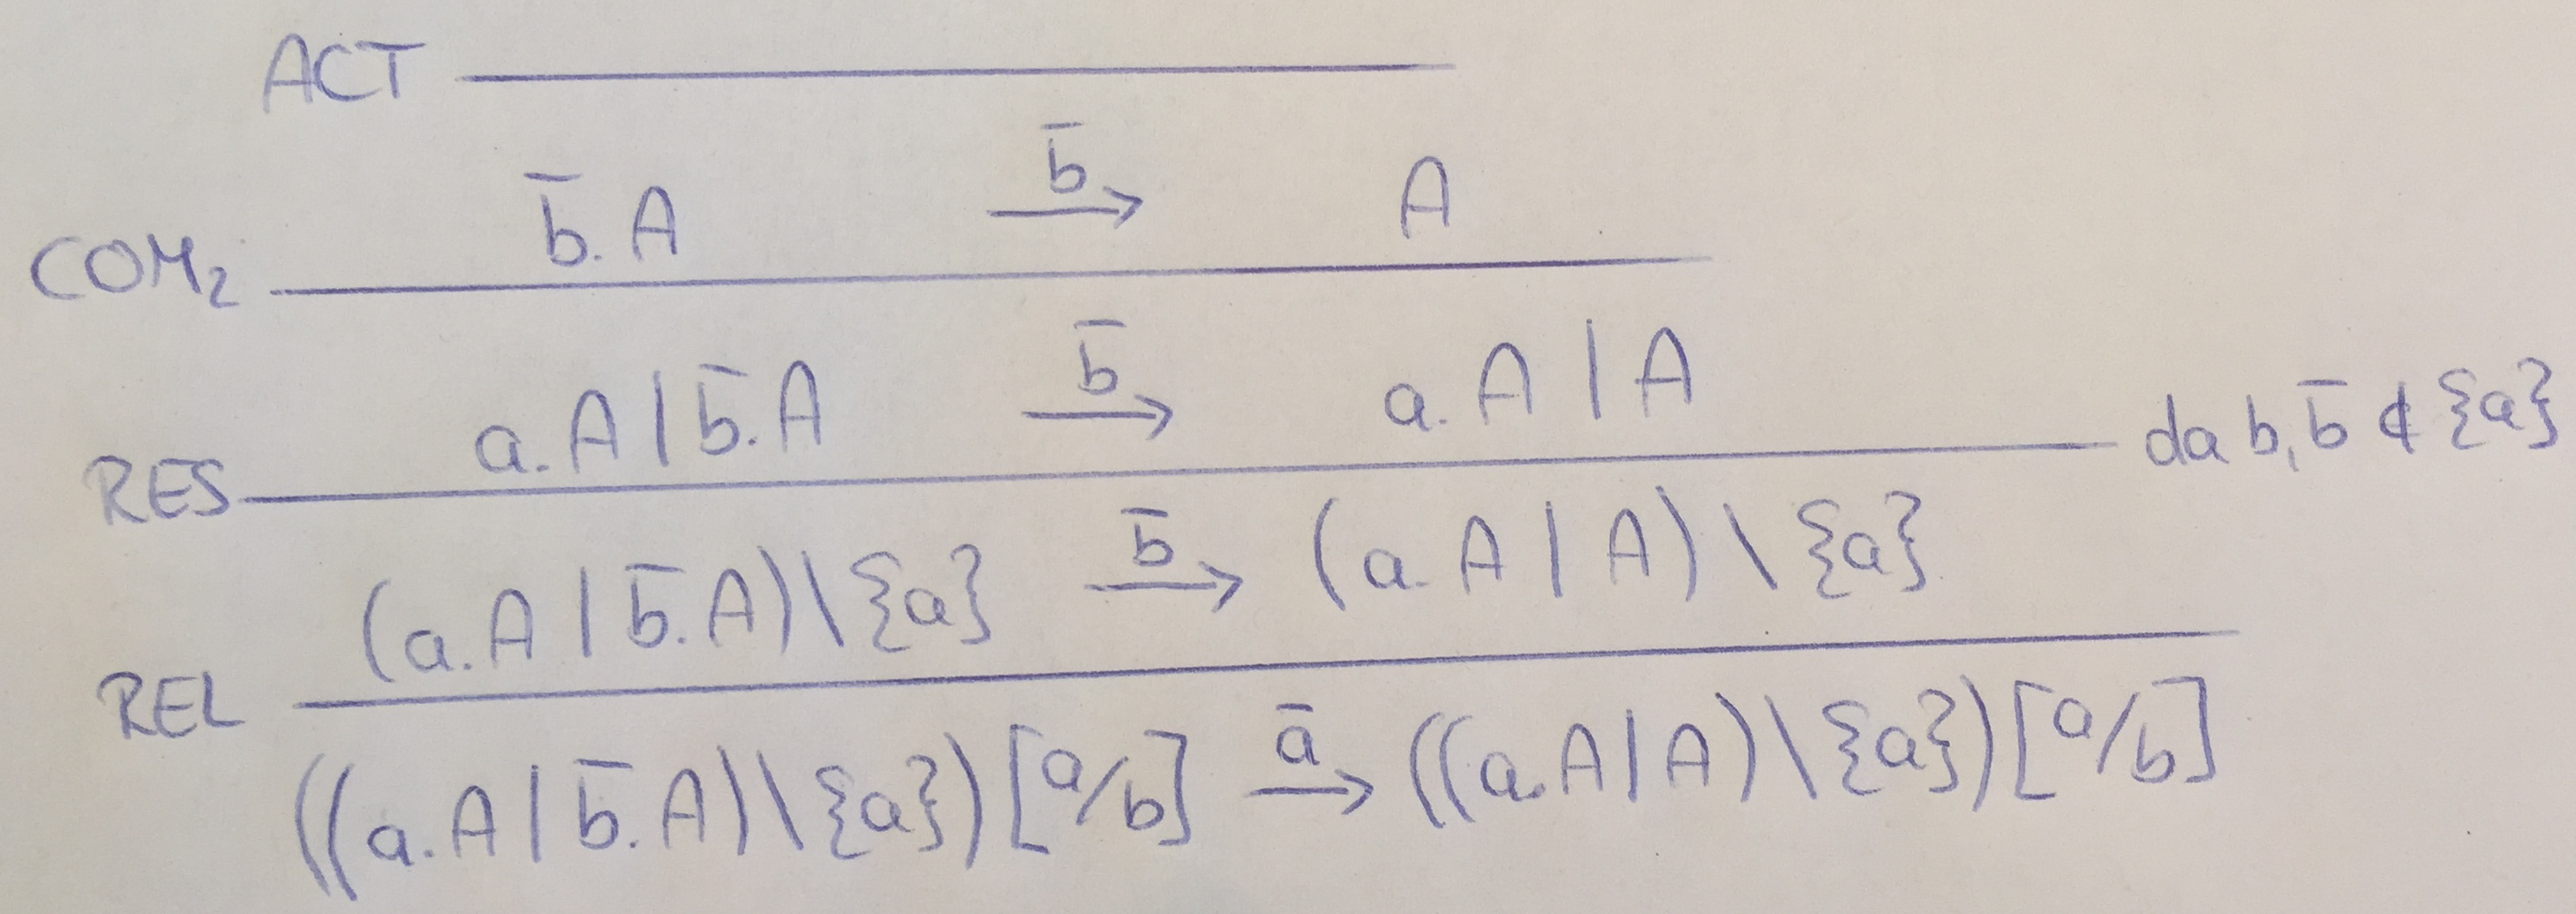 ACT
b̄.A →b̄ A
COM₂
a.A | b̄.A →b̄ a.A | A
RES da b, b̄ ∉ {a}
(a.A | b̄.A) \ {a} →b̄ (a.A | A) \ {a}
REL
((a.A | b̄.A) \ {a}) [a/b] →ā ((a.A | A) \ {a}) [a/b]